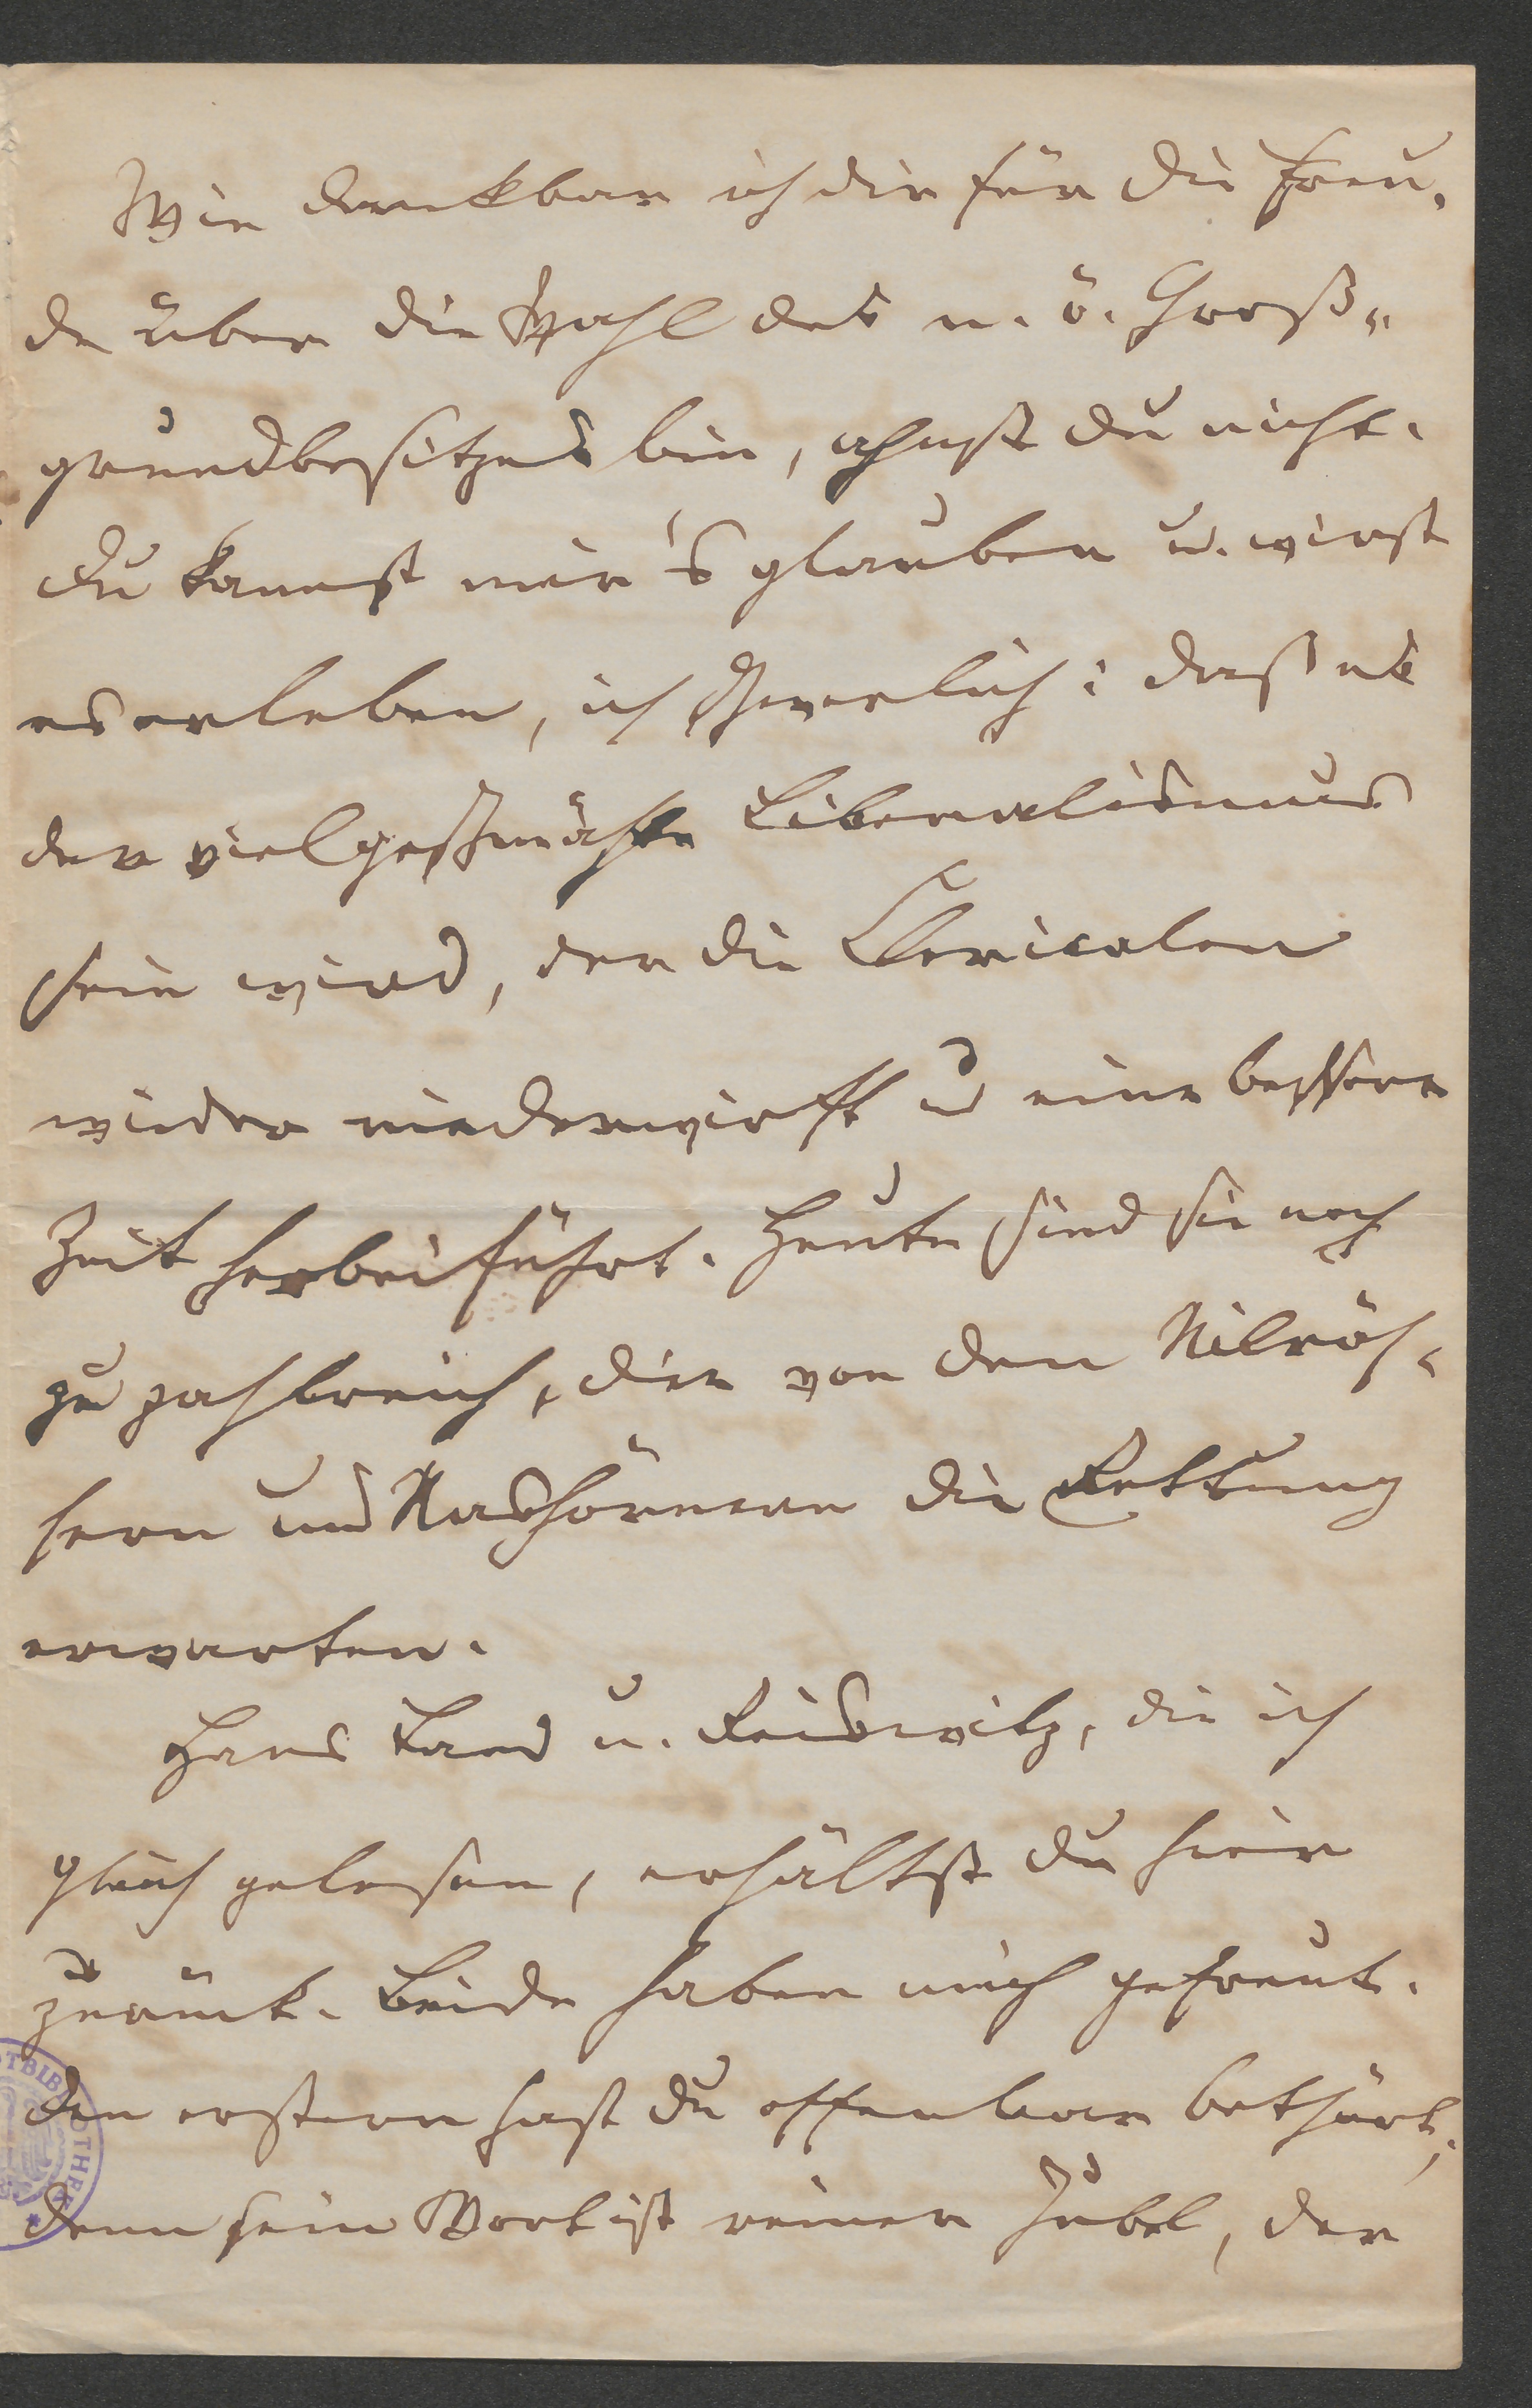 Wie dankbar ich dir für die Freu-
de über die Wahl des n. ö. Groß-
grundbesitzes bin, ahnst du nicht.
Du kannst mir's glauben u. wirst
es erleben, ich schwerlich: daß es
der vielgeschmähte Liberalismus
sein wird, der die Clericalen
wieder niederwirft u eine bessere
Zeit herbeiführt. Heute sind sie noch
zu zahlreich, die von den Nilröh-
sern und Nashörnern die Rettung
erwarten.
Hans Land u. Reiswitz, die ich
gleich gelesen, erhältst du hier
zurück. Beide haben mich gefreut.
Den erstern hast du offenbar bethört,
denn sein Wort ist reiner Jubel, der
OTBIBL OTHEK